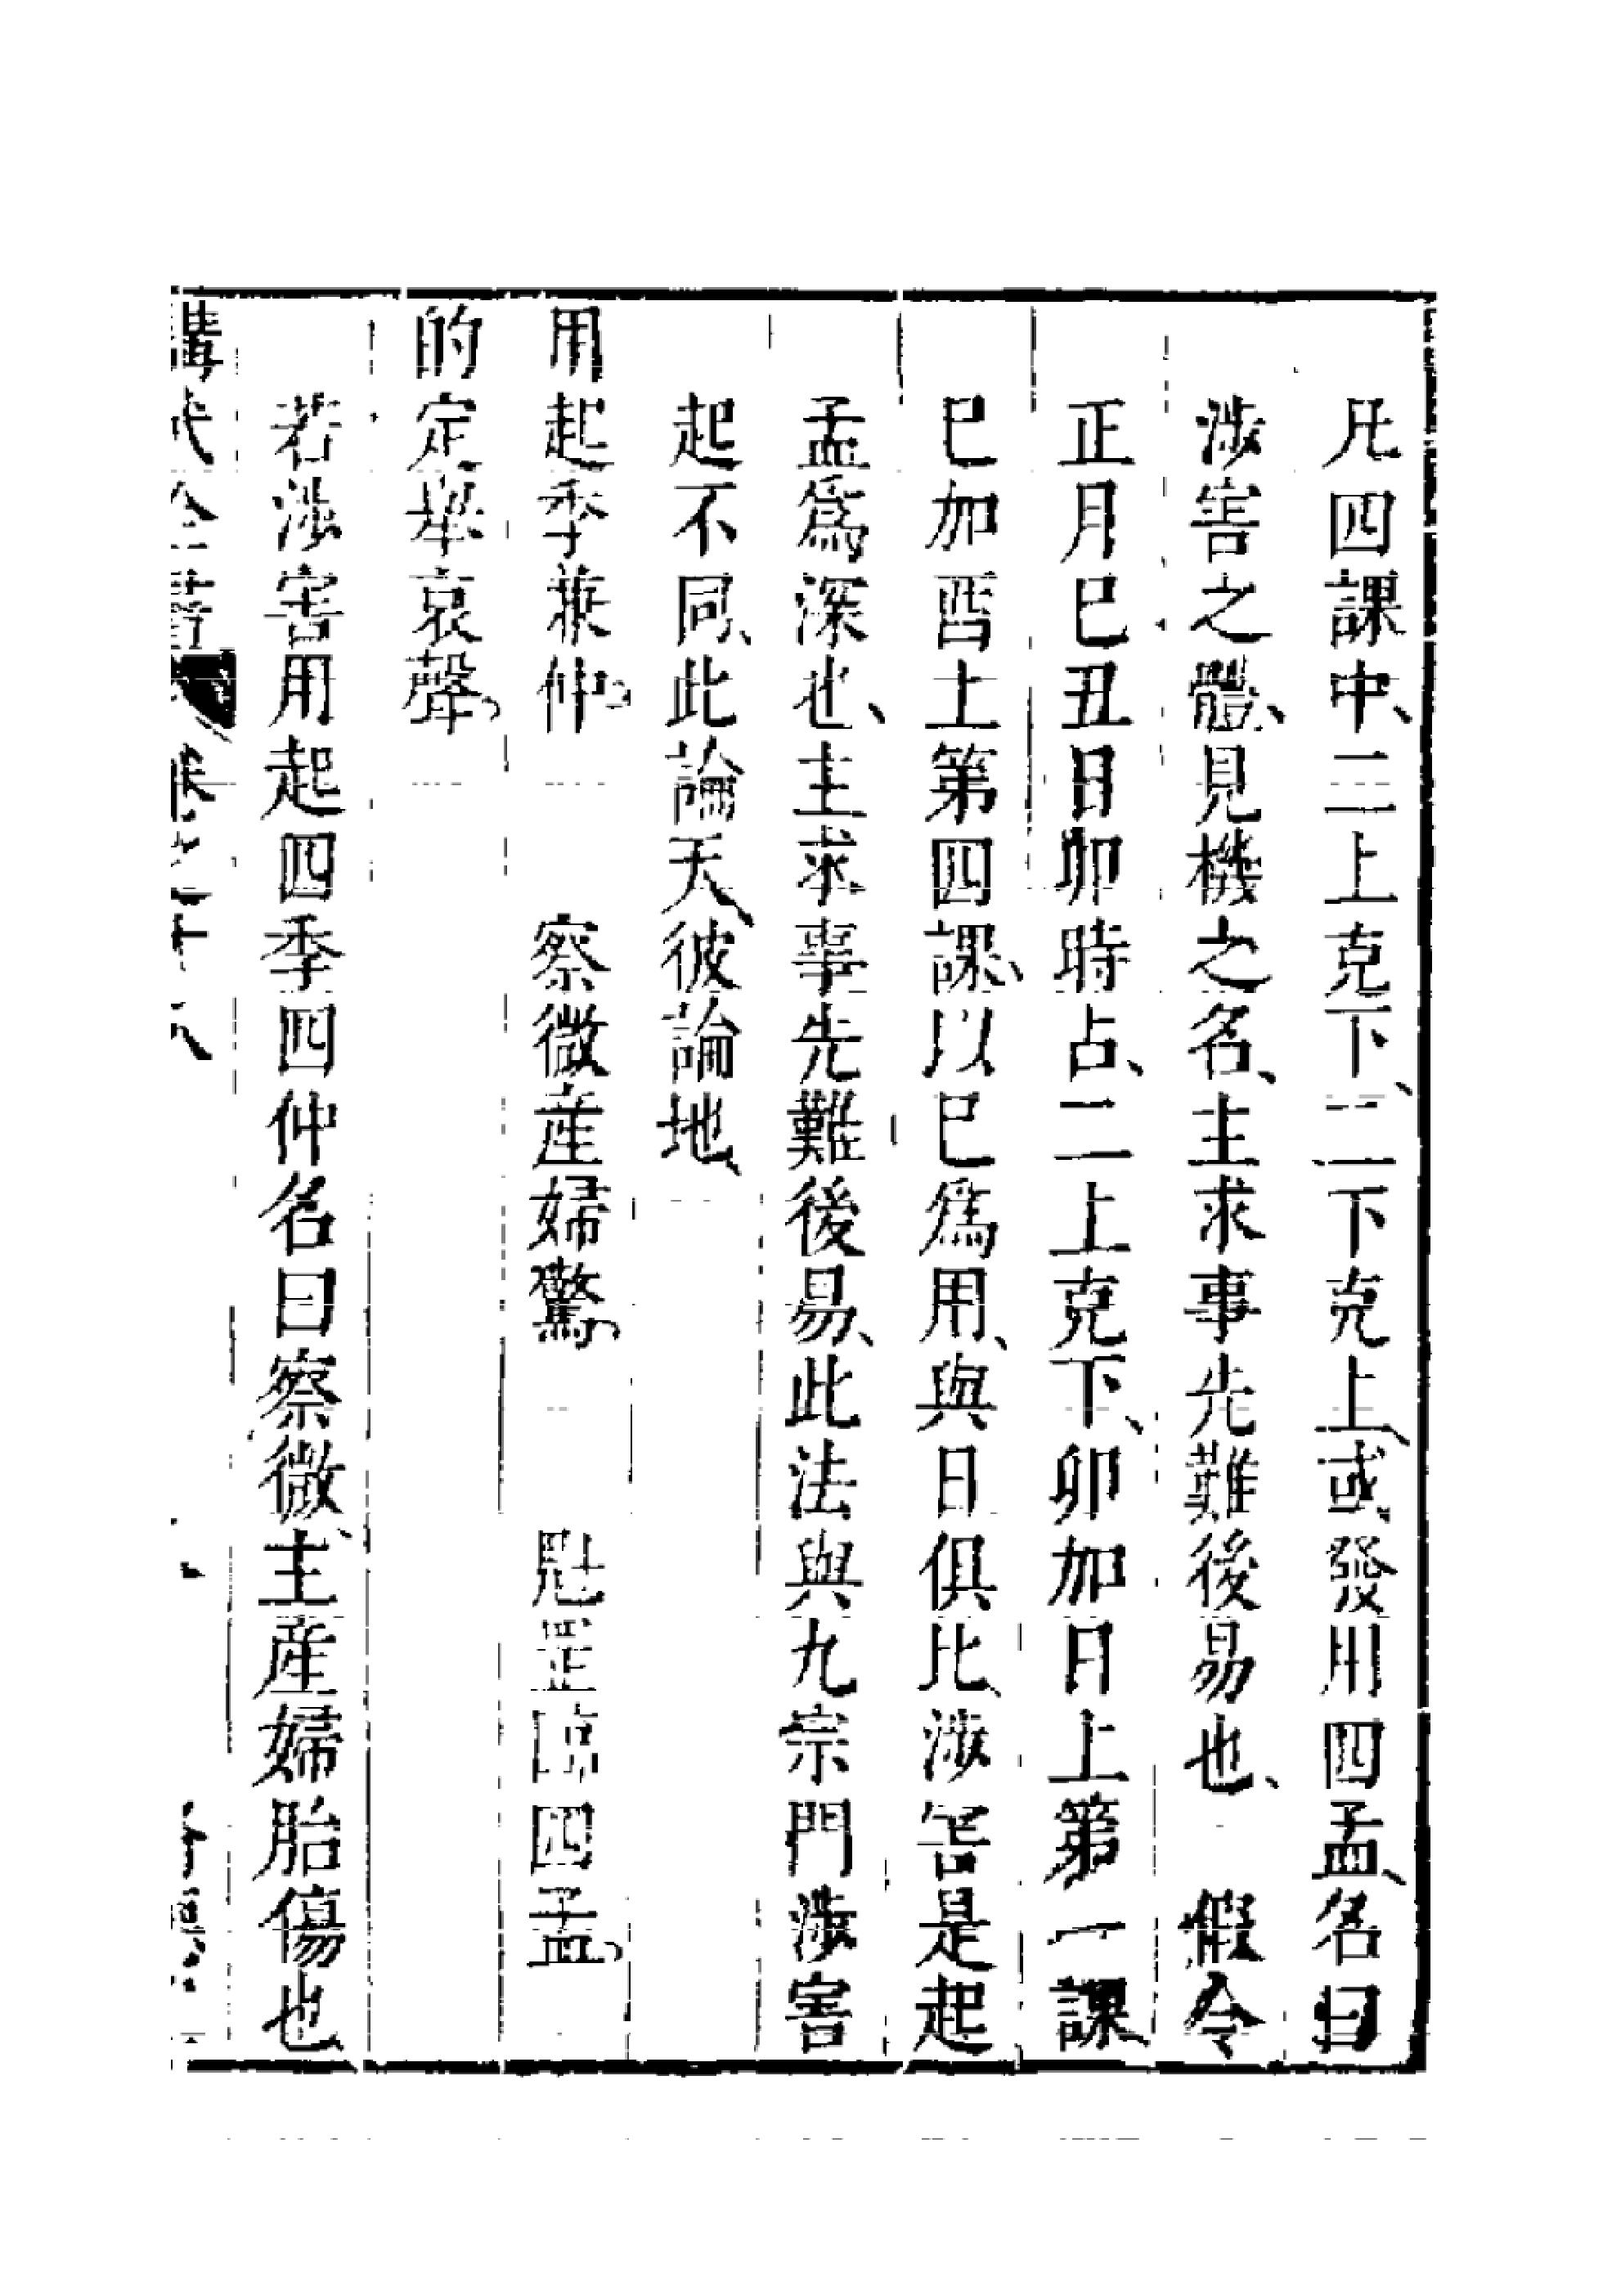 凡四課中、二上克下、二下克上、或發用四孟、名曰
涉害之體、見機之名、主求事先難後易也、 假令
正月巳丑日卯時占、二上克下、卯加日上第一課、
巳加酉上第四課、以巳爲用、與日俱比、涉害是起
孟爲深也、主求事先難後易、此法與九宗門涉害
起不同、此論天、彼論地、
用起季兼仲。 察微産婦驚。 魁罡臨四孟。
的定舉哀聲。
若涉害用起四季四仲名曰察微、主産婦胎傷也